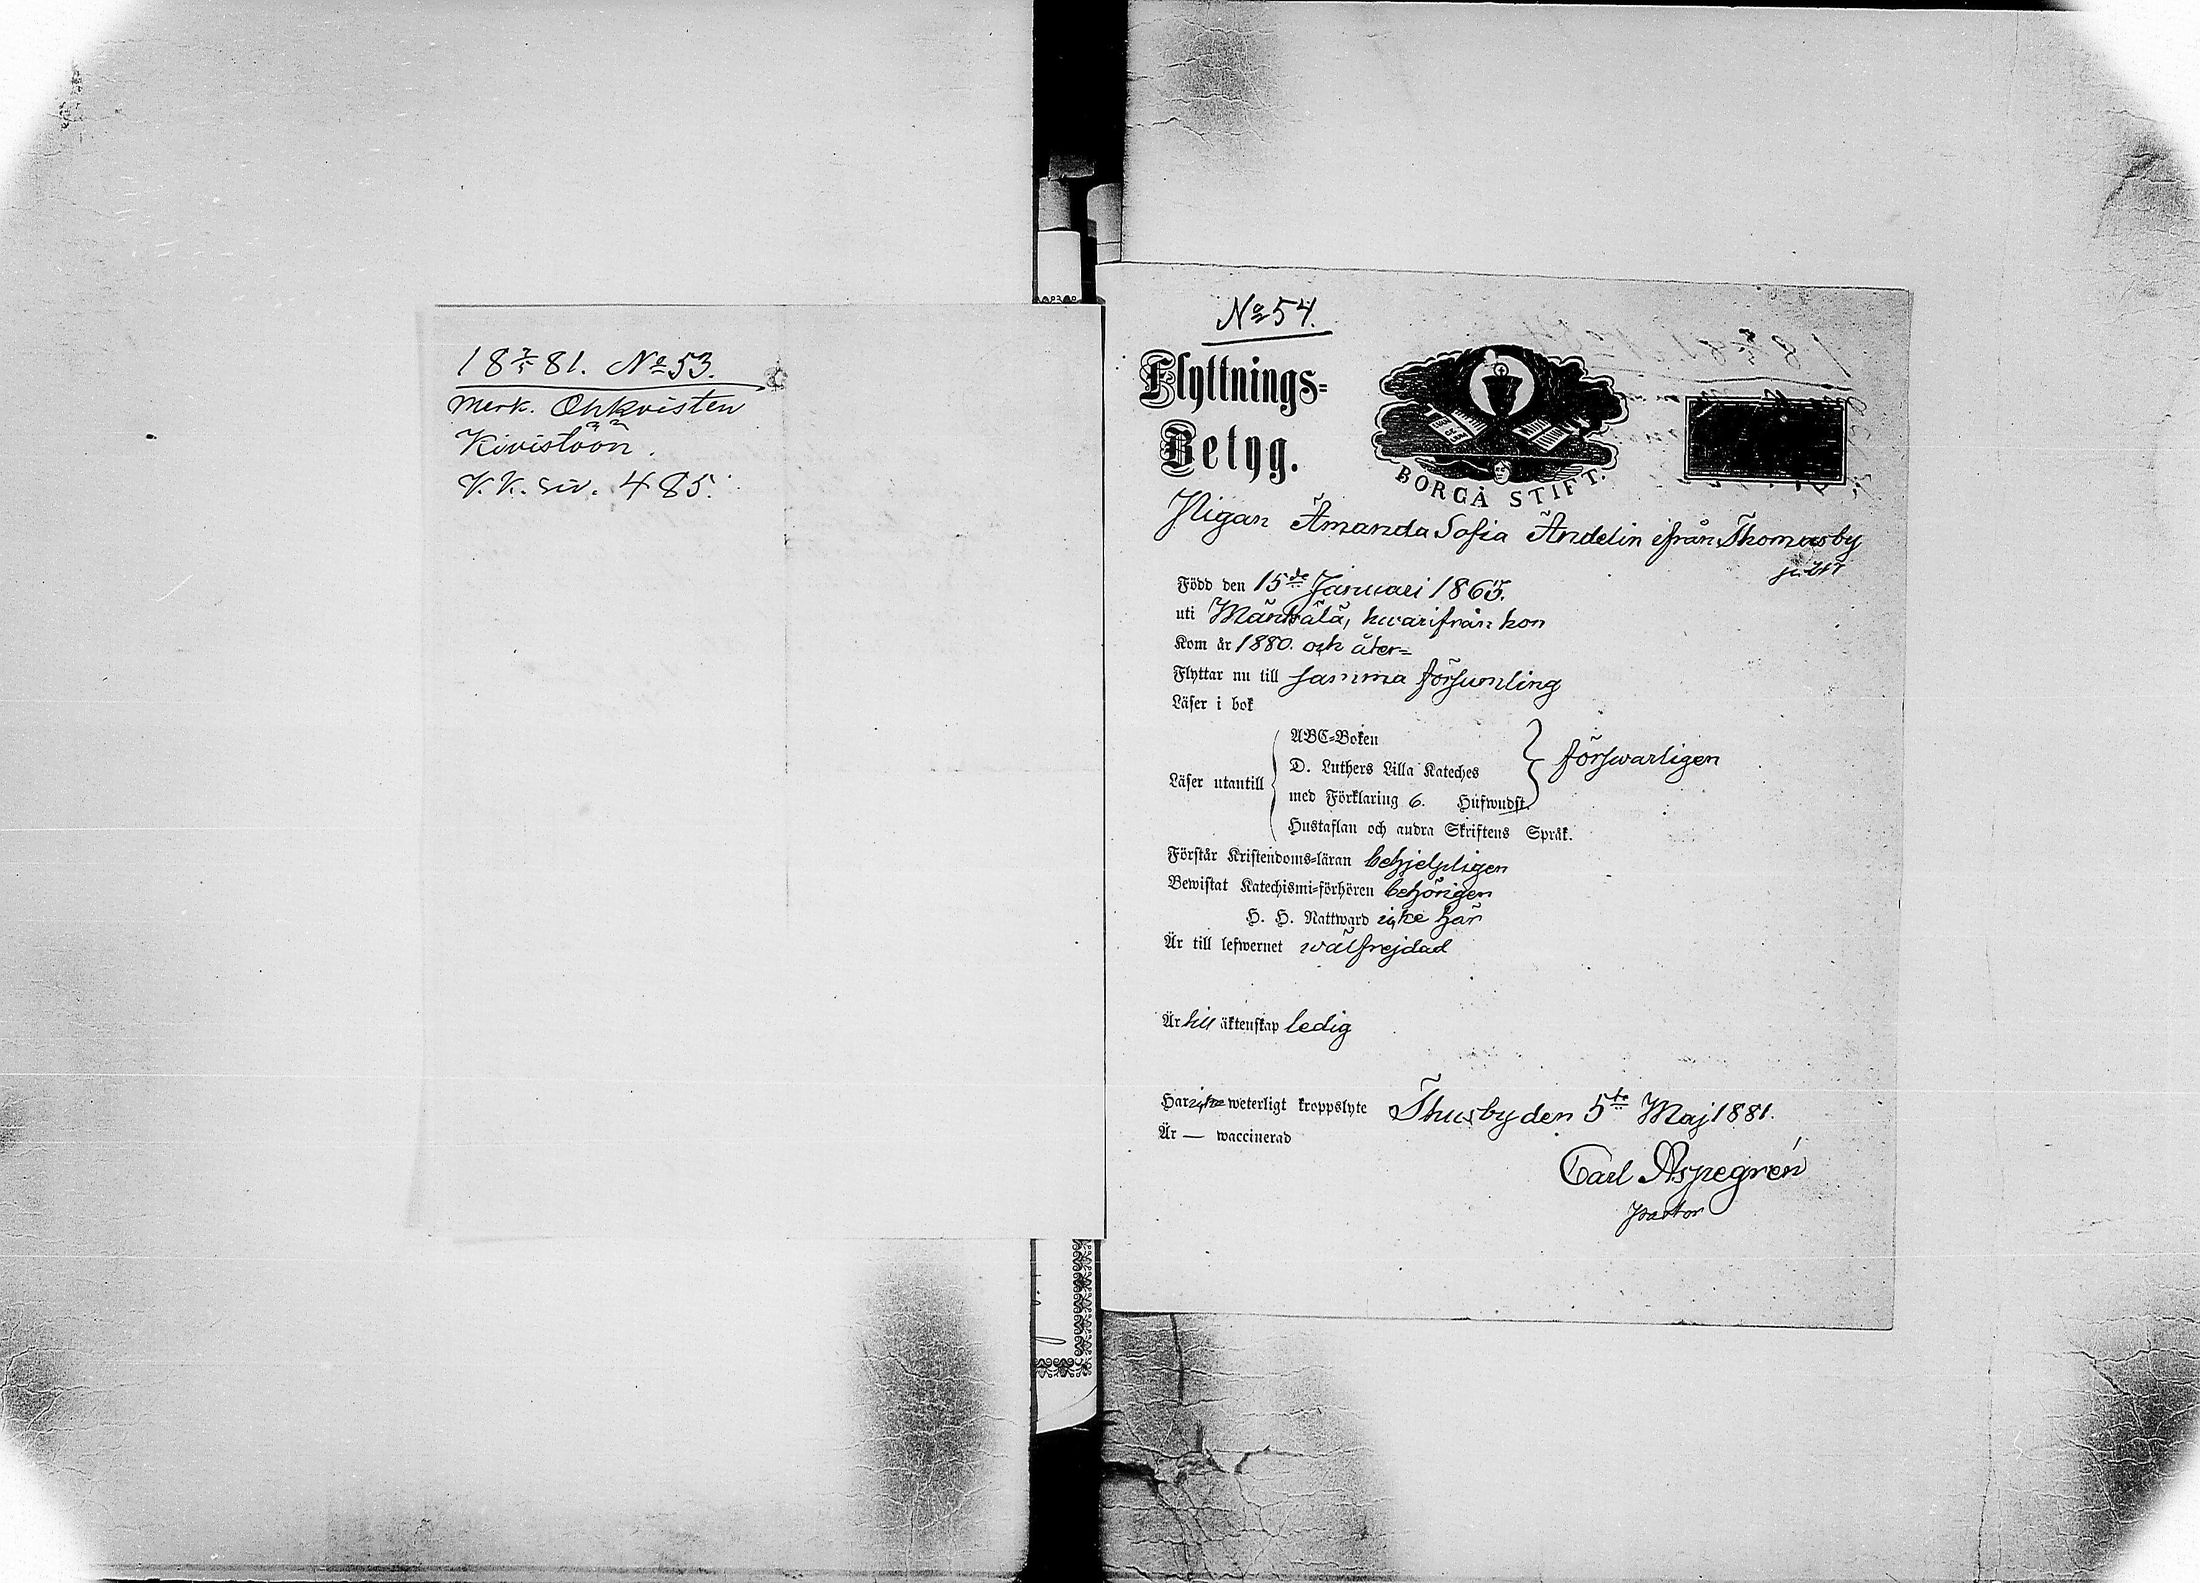 18 7/5 81. No 53.
merk. Ohkvisten
Kivistöön.
K.K. siv. 485.
No 54.
Flyttnings-
Betyg.
BORGÅ STIFT.
Pigan Amanda Sofia Andelin ifrån Thomasby
Född den 15de Januari 1863.
uti Mäntsälä, hwarifrån hon
Kom år 1880. och åter-
Flyttar nu till samma församling
Läser i bok
ABC-Boken
D. Luthers Lilla Kateches
Läser utantill
med Förklaring 6. Hufwudst.
försvarligen
Hustaflan och andra Skriftens Språk.
Förstår Kristendoms-läran behjelpligen
Bewistat Katechismi-förhören behörigen
H. H. Nattward icke här
Är till lefwernet wälfrejdad
Är till äktenskap ledig
Har icke weterligt kroppslyte Thusby den 5te Maj 1881.
Är — waccinerad
Carl Aspegrén
pastor